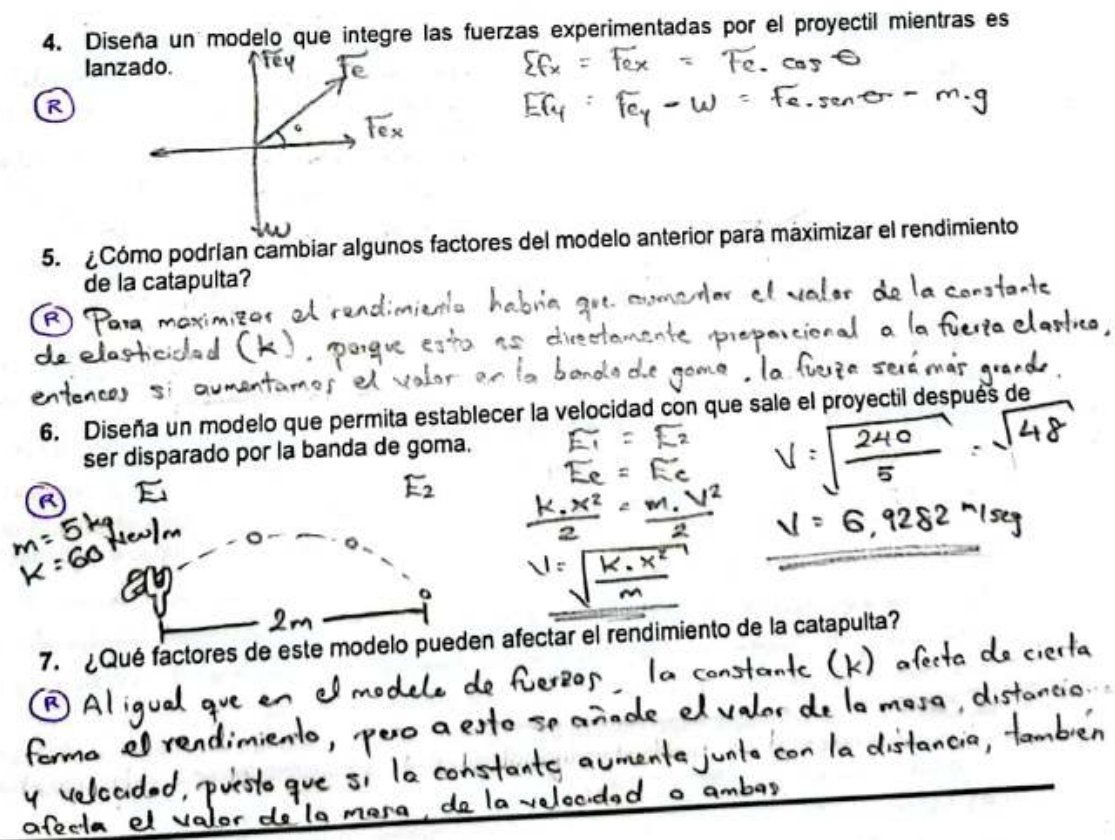 4. Diseña un modelo que integre las fuerzas experimentadas por el proyectil mientras es
lanzado.
R
Fey
Fe
Fex
w
Σfx = Fex = Fe. cos θ
Efy = Fey - w = Fe.sen θ - m.g
5. ¿Cómo podrían cambiar algunos factores del modelo anterior para maximizar el rendimiento
de la catapulta?
R Para maximizar el rendimiento habría que aumentar el valor de la constante
de elasticidad (k), porque esto es directamente proporcional a la fuerza elastica,
entonces si aumentamos el valor en la banda de goma, la fuerza será más grande.
6. Diseña un modelo que permita establecer la velocidad con que sale el proyectil después de
ser disparado por la banda de goma.
R
E1
E2
m = 5 kg
K = 60 New/m
2m
E1 = E2
Ee = Ec
k.x²/2 = m.V²/2
V = √(k.x²/m)
V = √(240/5) = √48
V = 6,9282 m/seg
7. ¿Qué factores de este modelo pueden afectar el rendimiento de la catapulta?
R Al igual que en el modelo de fuerzas, la constante (k) afecta de cierta
forma el rendimiento, pero a esto se añade el valor de la masa, distancia
y velocidad, puesto que si la constante aumenta junto con la distancia, también
afecta el valor de la masa, de la velocidad o ambas